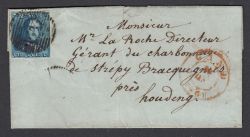 Monsieur
Mr La Roche Directeur
Gérant du charbonnage
de Strépy Bracquegnies
près
houdeng